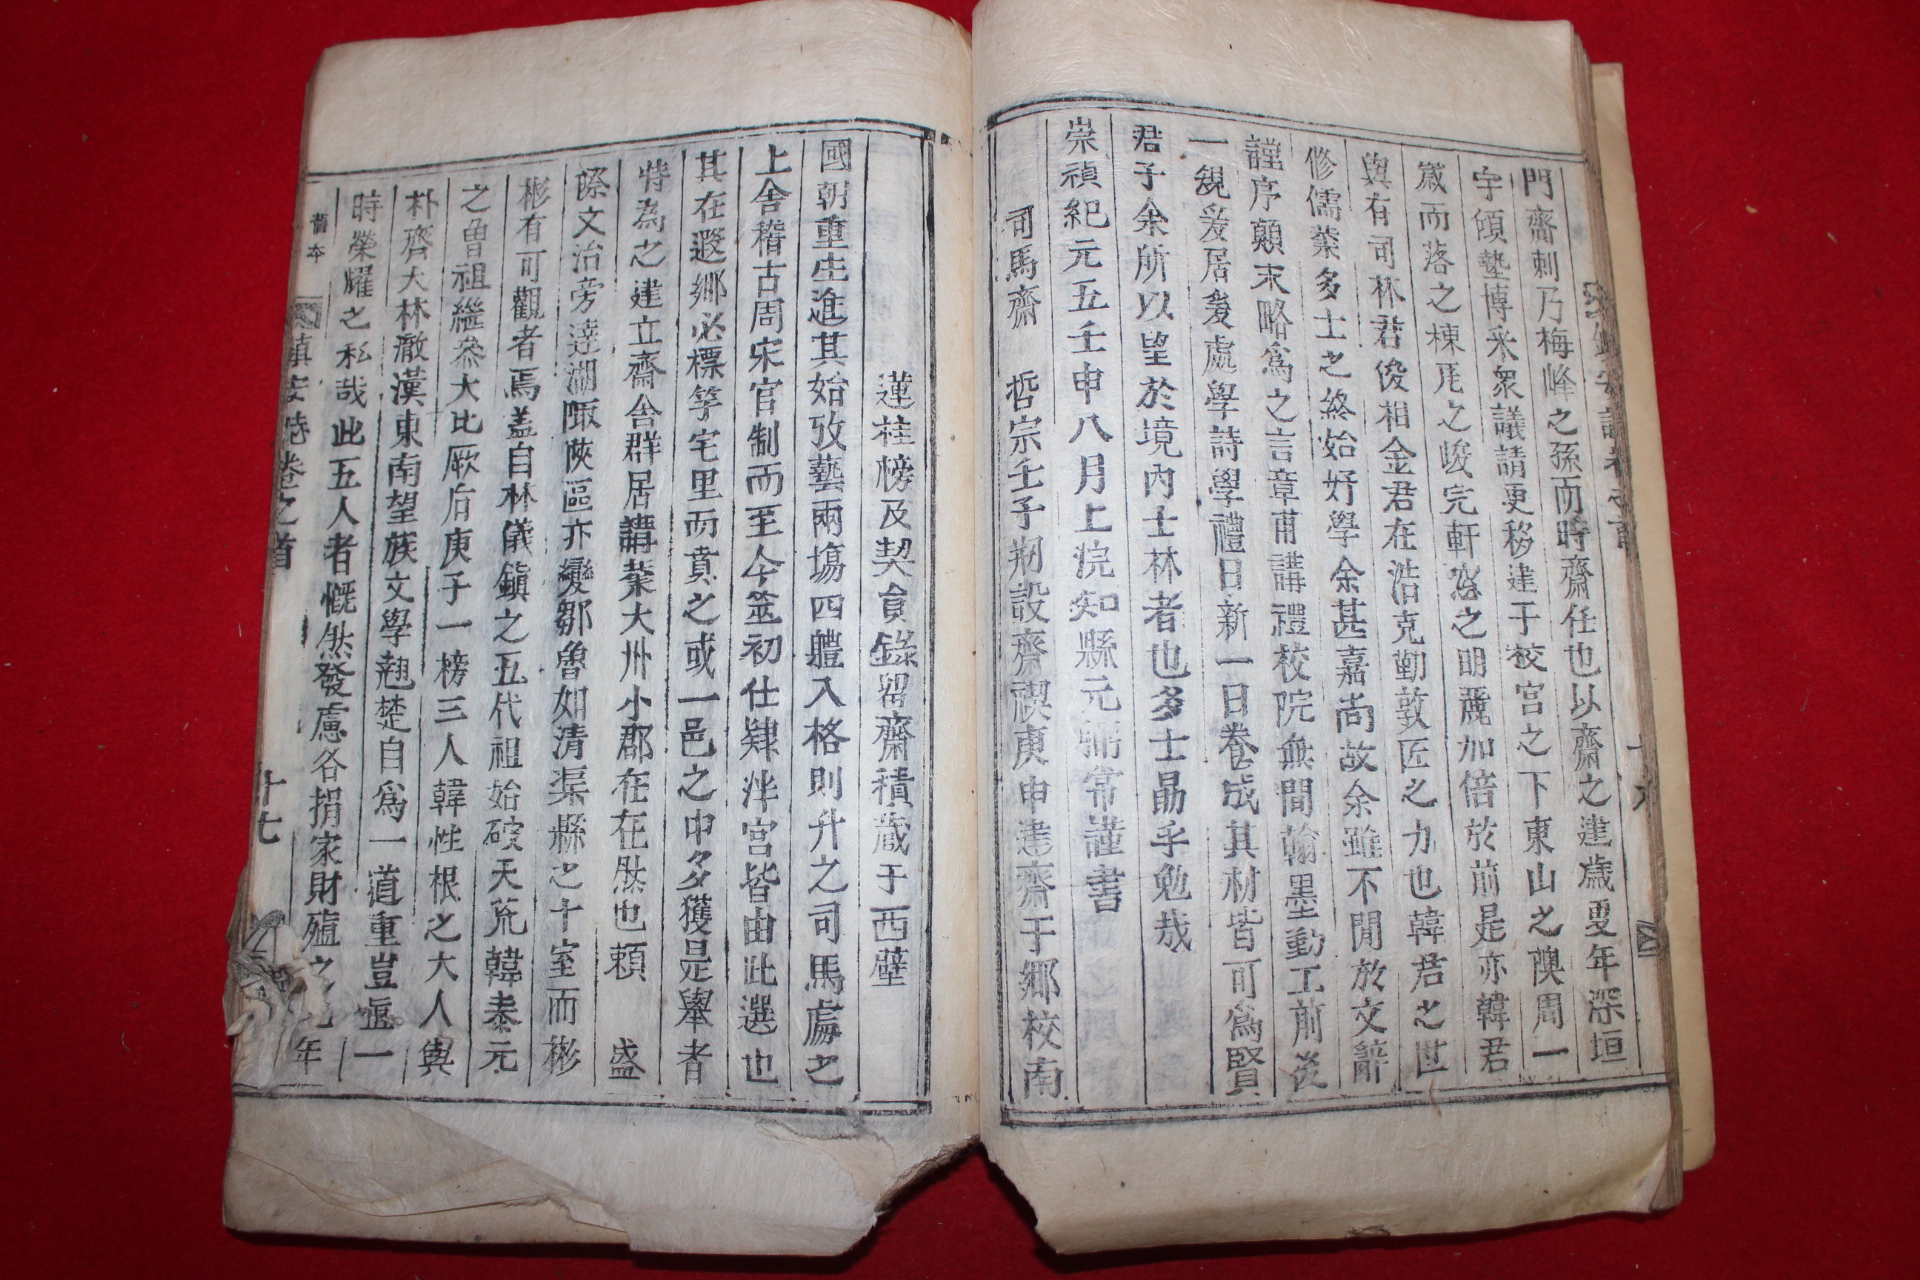 門齋刺乃梅峰之孫而時齋任也以齋之建歲更年深垣
宇頎墊博采衆議請更移建于校宮之下東山之隩周一
箴而落之棟甍之峻完軒窓之明麗加倍於前是亦韓君
與有司林君俊相金君在浩克勤敦匠之力也韓君之世
修儒業多士之終始好學余甚嘉尚故余雖不閒於文辭
謹序顛末略爲之言章甫講禮校院無間翰墨動工前後
一規爰居爰處學詩學禮日新一日卷成其材皆可爲賢
君子余所以望於境內士林者也多士勗乎勉哉
崇禎紀元五壬申八月上浣知縣元彌常謹書
司馬齋 哲宗壬子刱設齋禊庚申建齋于鄉校南
蓮桂榜及契食錄留齋積藏于西壁
國朝重生進其始攷藝兩塲四軆入格則升之司馬處之
上舍稽古周宋官制而至今筮初仕肄泮宮皆由此選也
其在遐鄉必標竿宅里而賁之或一邑之中多獲是舉者
特為之建立齋舍群居講業大州小郡在在然也頼 盛
際文治旁達湖陬陜區亦變鄒魯如清渠縣之十室而彬
彬有可觀者焉盖自林儀鎭之五代祖始破天荒韓泰元
之曾祖繼叅大比厥后庚子一榜三人韓性根之大人與
朴齊大林澈漢東南望族文學翹楚自爲一道重豈徧一
時榮耀之私哉此五人者慨然發慮各捐家財殖之 年
舊本
鎭安誌卷之首
十七